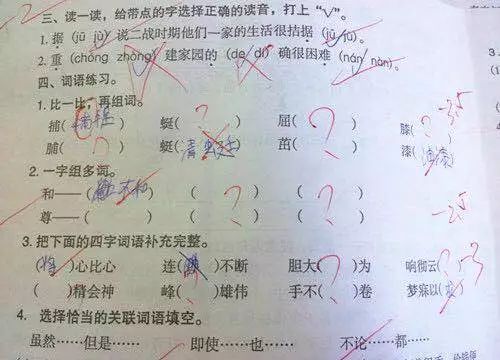 三、读一读，给带点的字选择正确的读音，打上“√”。
1. 据（jū jù）说二战时期他们一家的生活很拮据（jū jù）。
2. 重（chóng zhòng）建家园的（de dí）确很困难（nán nàn）。
四、词语练习。
1. 比一比，再组词。
捕（捕捉） 蜓（ ） 屈（ ） 膝（ ）
脯（ ） 蜓（蜻蜓） 茁（ ） 漆（油漆）
2. 一字组多词。
和——（ ） （ ） （ ） （ ）
尊——（ ） （ ） （ ） （ ）
3. 把下面的四字词语补充完整。
（将）心比心 连（ ）不断 胆大（ ）为 响彻云（ ）
（ ）精会神 峰（ ）雄伟 手不（ ）卷 梦寐以（ ）
4. 选择恰当的关联词语填空。
虽然……但是…… 即使……也…… 不论……都……